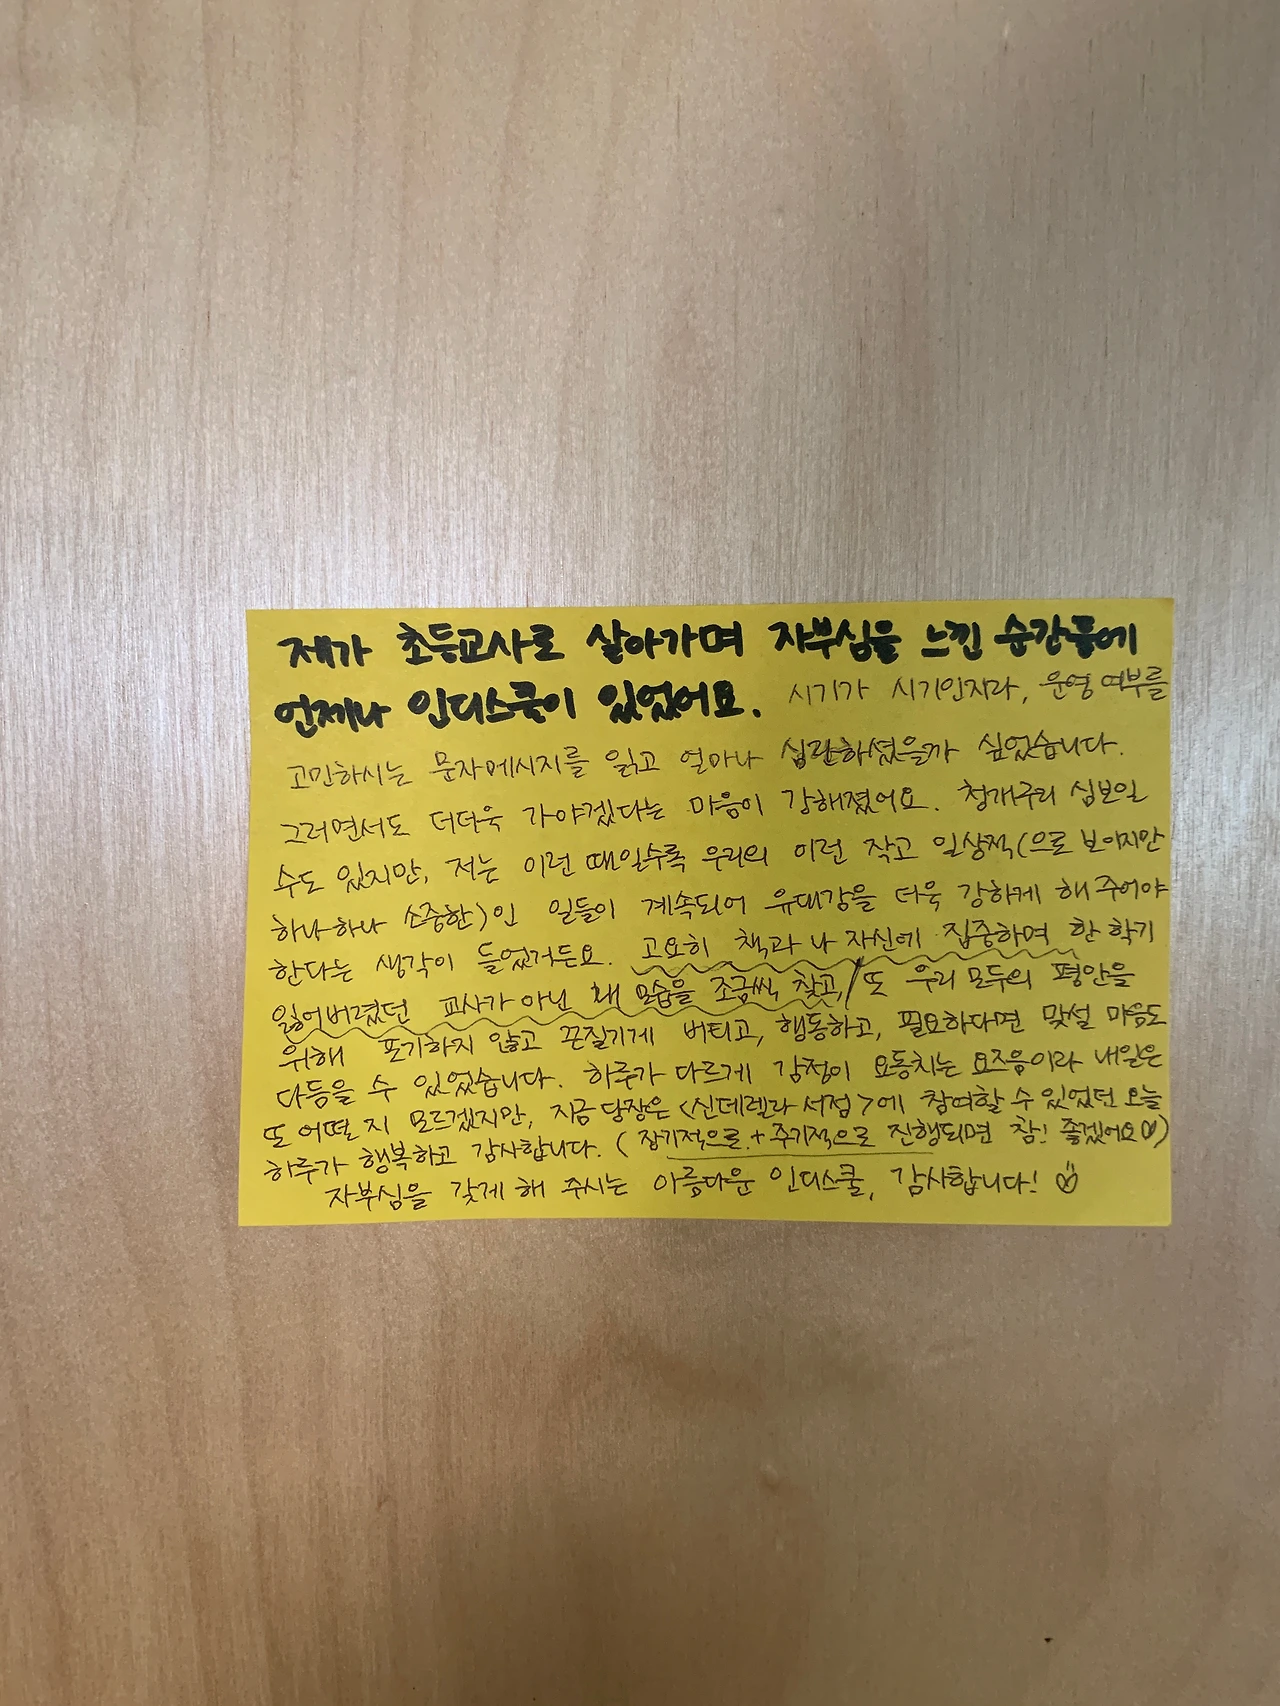 제가 초등교사로 살아가며 자부심을 느낀 순간들에
언제나 인디스쿨이 있었어요. 시기가 시기인지라, 운영 여부를
고민하시는 문자메시지를 읽고 얼마나 심란하셨을까 싶었습니다.
그러면서도 더더욱 가야겠다는 마음이 강해졌어요. 청개구리 심보일
수도 있지만, 저는 이런 때일수록 우리의 이런 작고 일상적(으로 보이지만
하나하나 소중한)인 일들이 계속되어 유대감을 더욱 강하게 해 주어야
한다는 생각이 들었거든요. 고요히 책과 나 자신에 집중하며 한 학기
잃어버렸던 교사가 아닌 제 모습을 조금씩 찾고, / 또 우리 모두의 평안을
위해 포기하지 않고 끈질기게 버티고, 행동하고, 필요하다면 맞설 마음도
다듬을 수 있었습니다. 하루가 다르게 감정이 요동치는 요즈음이라 내일은
또 어떨 지 모르겠지만, 지금 당장은 <신데렐라 서점>에 참여할 수 있었던 오늘
하루가 행복하고 감사합니다. (장기적으로 + 주기적으로 진행되면 참! 좋겠어요♡)
자부심을 갖게 해 주시는 아름다운 인디스쿨, 감사합니다!